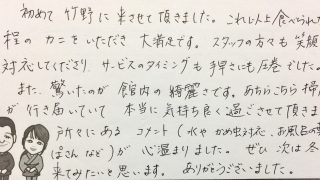 初めて 竹野に 来させて頂きました。これ以上 食べられない
程の カニをいただき 大満足です。スタッフの方々も 笑顔
対応してくださり サービスのタイミングも 手早さにも圧巻でした。
また、驚いたのが 館内の 綺麗さです。あちらこちら 掃
が 行き届いていて 本当に 気持ち良く過ごさせて頂きま
戸だにある コメント(水や かめ虫対応、お風呂の
ぱさん など)が 心温まりました。ぜひ 次は 冬
来てみたいと思います。ありがとうございました。